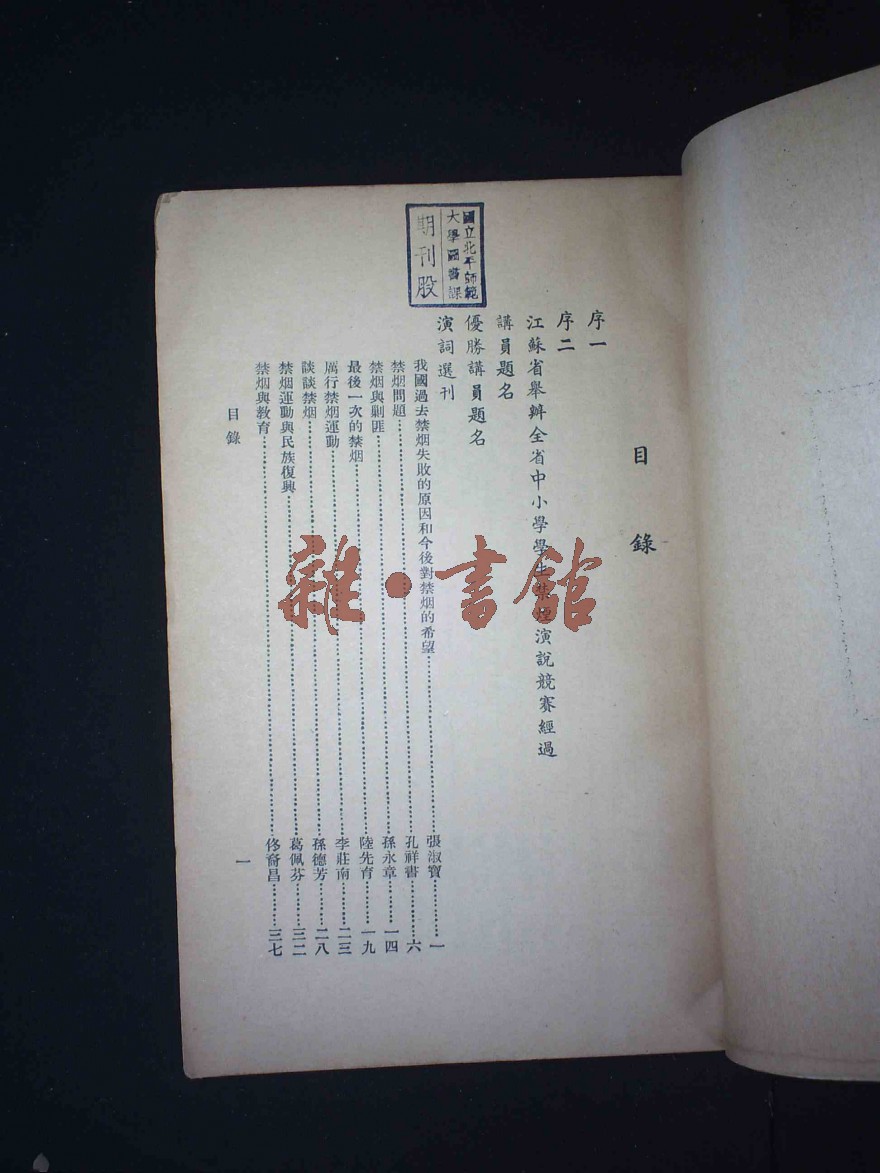 國立北平師範
大學圖書課
期刊股
目錄
序一
序二
江蘇省舉辦全省中小學學生禁煙演說競賽經過
講員題名
優勝講員題名
演詞選刊
我國過去禁烟失敗的原因和今後對禁烟的希望…………張淑寶…………一
禁烟問題…………孔祥書…………六
禁烟與剿匪…………孫永章…………一四
最後一次的禁烟…………陸先育…………一九
厲行禁烟運動…………李莊南…………二三
談談禁烟…………孫德芳…………二八
禁烟運動與民族復興…………葛佩芬…………三二
禁烟與教育…………佟裔昌…………三七
目錄
一
雜·書館